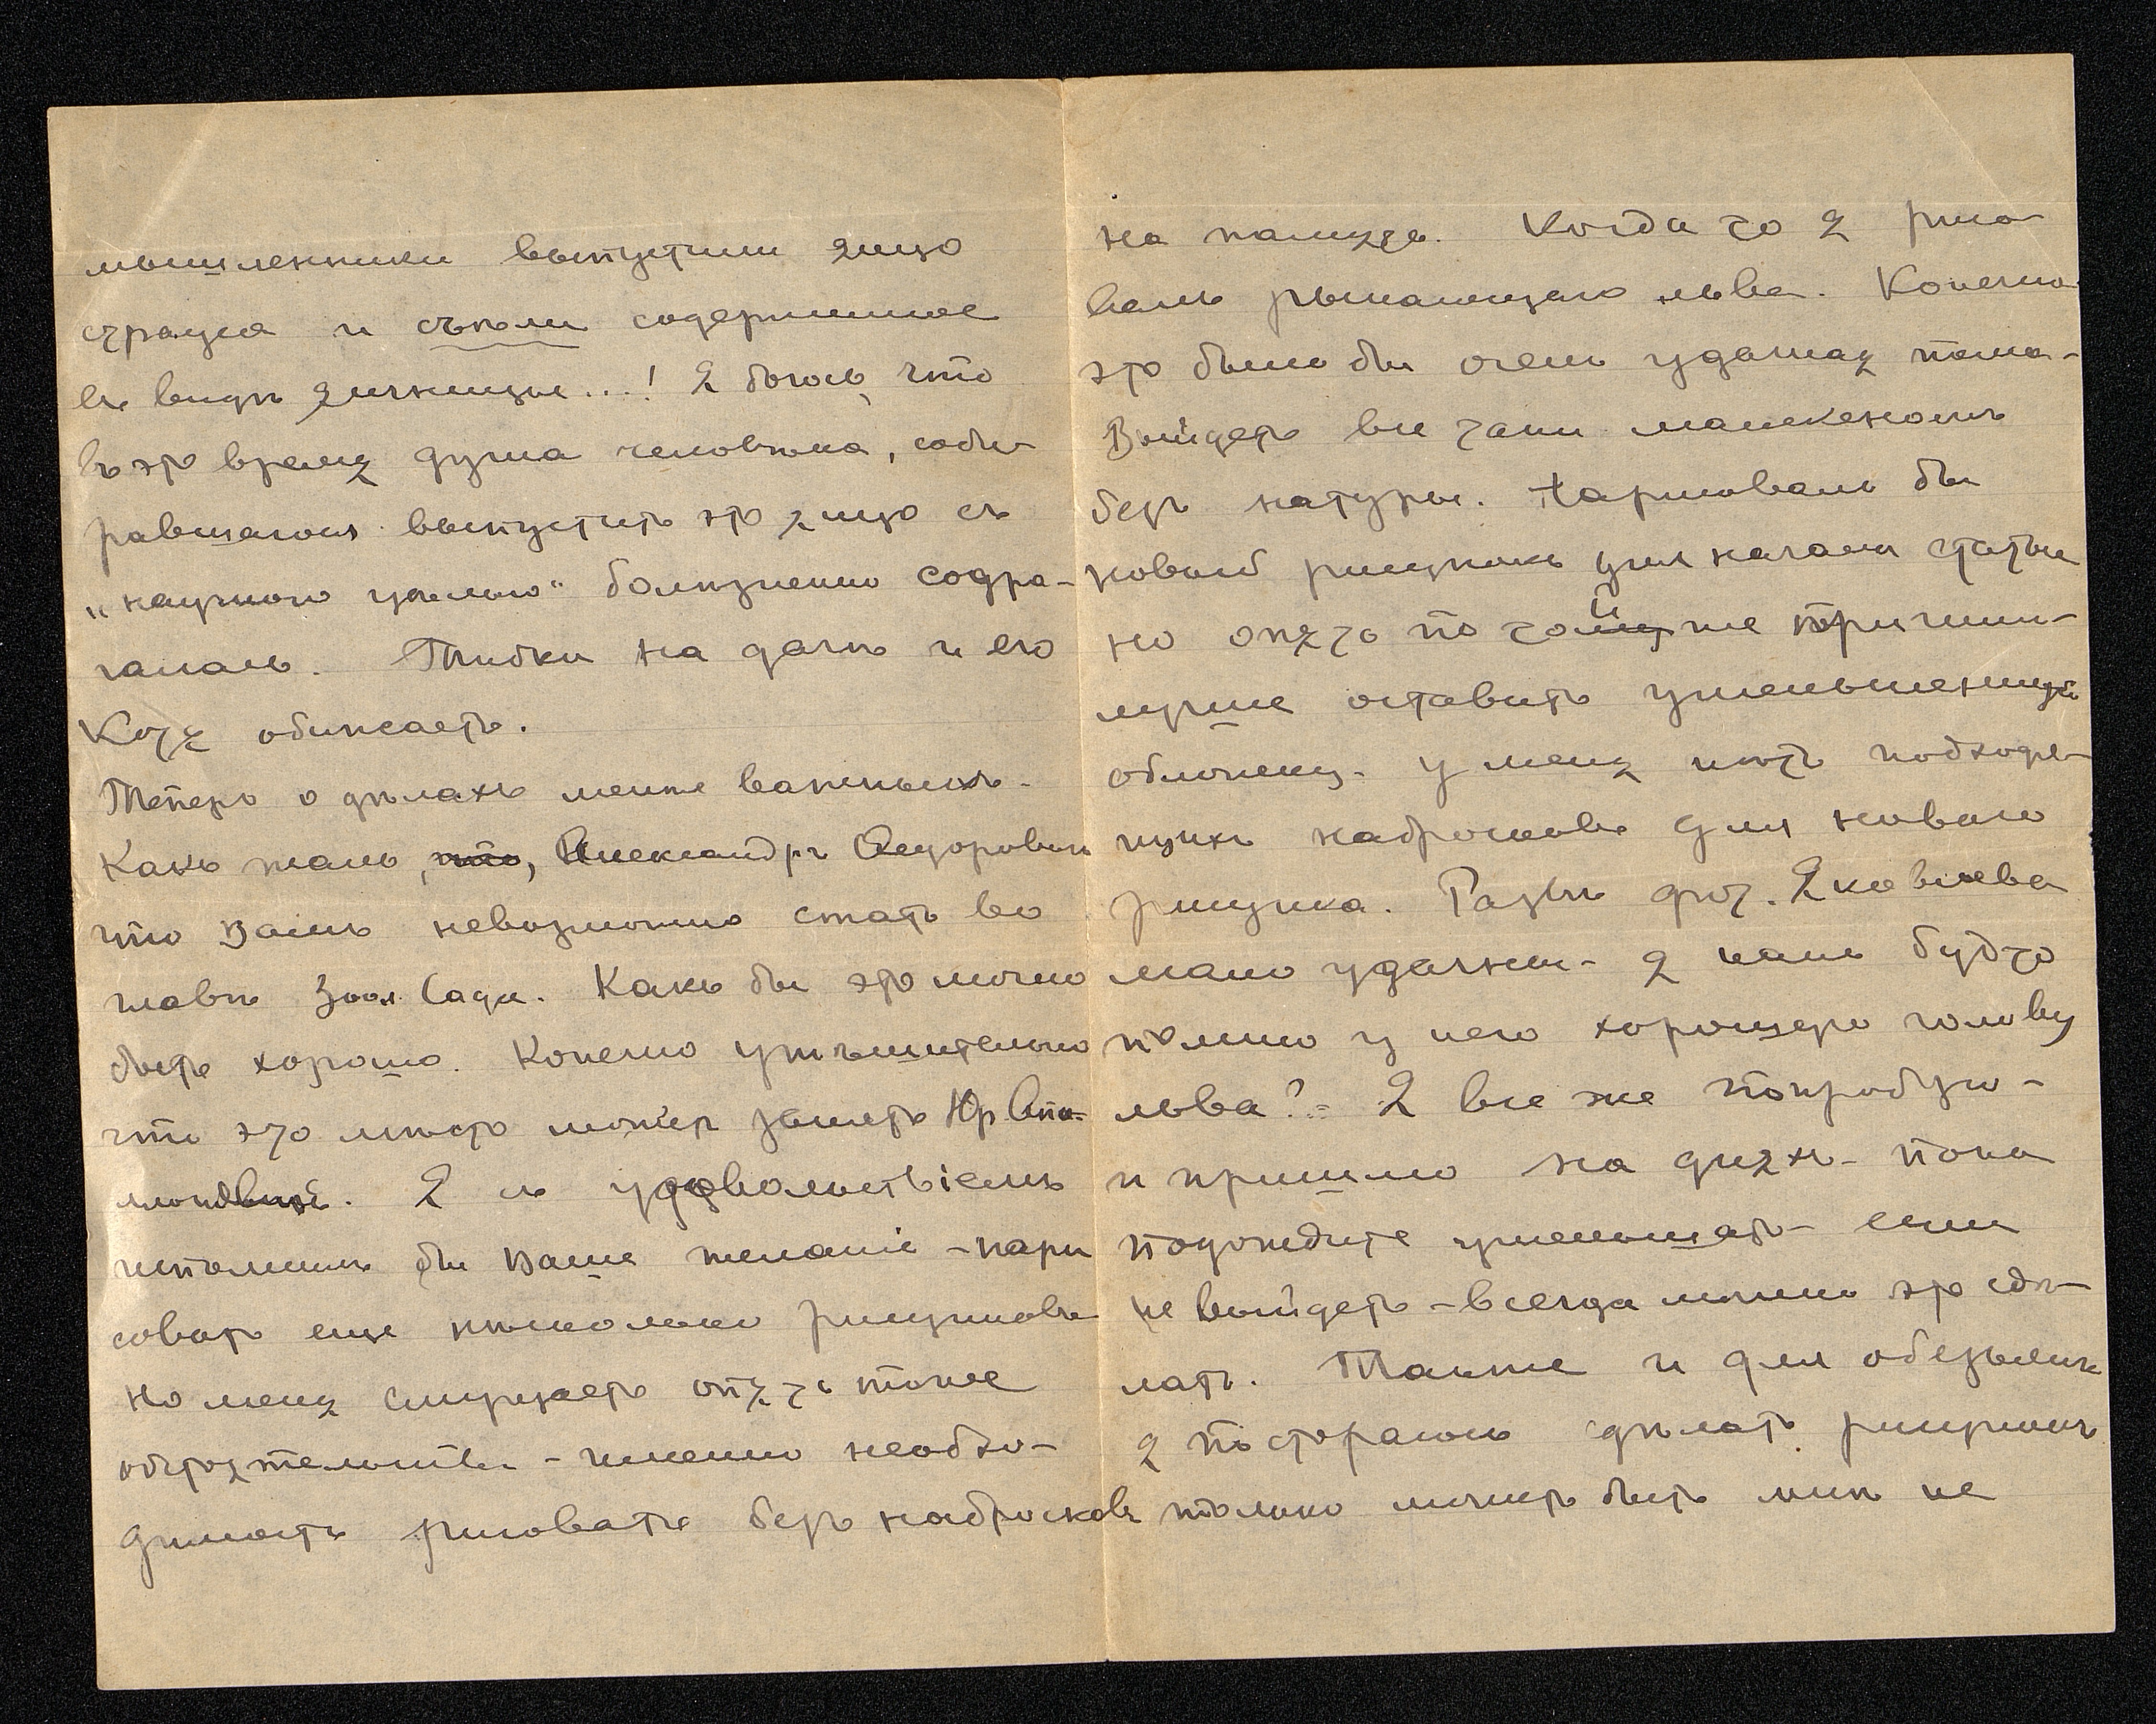 мышленники выпустили яицо
страуса и съѣли содержимое
въ видѣ яичницы...! Я боюсь, что
въ это время душа человѣка, соби-
равшагося выпустить это яицо съ
„научною цѣлью“ болѣзненно содра-
галась. Тибки на дачѣ и его
Котя обижаетъ.
Теперь о дѣлахъ менѣе важныхъ.
Какъ жаль, что, Александръ Федоровичъ
что Вамъ невозможно стать во
главѣ Зоол. Сада. Какъ бы это могло
быть хорошо. Конечно утѣшительно
что это мѣсто можетъ занять Юр
Я съ удовольствіемъ
исполнилъ бы Ваше желаніе - нари
совать еще нѣсколько рисунковъ
но меня смущаетъ опять тоже
обстоятельство - именно необхо-
димость рисовать безъ набросковъ
на память. Когда то я рисо
валъ рыкающаго льва. Конечно
это была бы очень удачная тема -
Выйдетъ все таки манекеномъ
безъ натуры. Нарисовалъ бы
новый рисунокъ для начала статьи
но опять по той же причинѣ -
лучше оставить уменьшенную
обложку. У меня нѣтъ подходя-
щихъ набросковъ для новаго
рисунка. Развѣ фот. Яковлева
мало удачны - я какъ будто
помню у него хорошую голову
льва? - Я все же попробую -
и пришлю на дняхъ - пока
подождите уменьшать - если
не выйдетъ - всегда можно это сдѣ-
лать. Также и для обезьянъ
я постараюсь сдѣлать рисунокъ
только можетъ быть мнѣ не